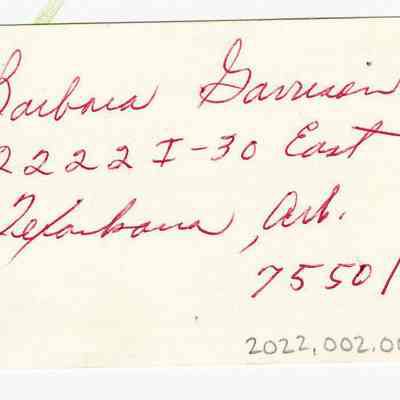 Barbara Garrison
2222 I-30 East
Texarkana, Ark.
75501
2022.002.00